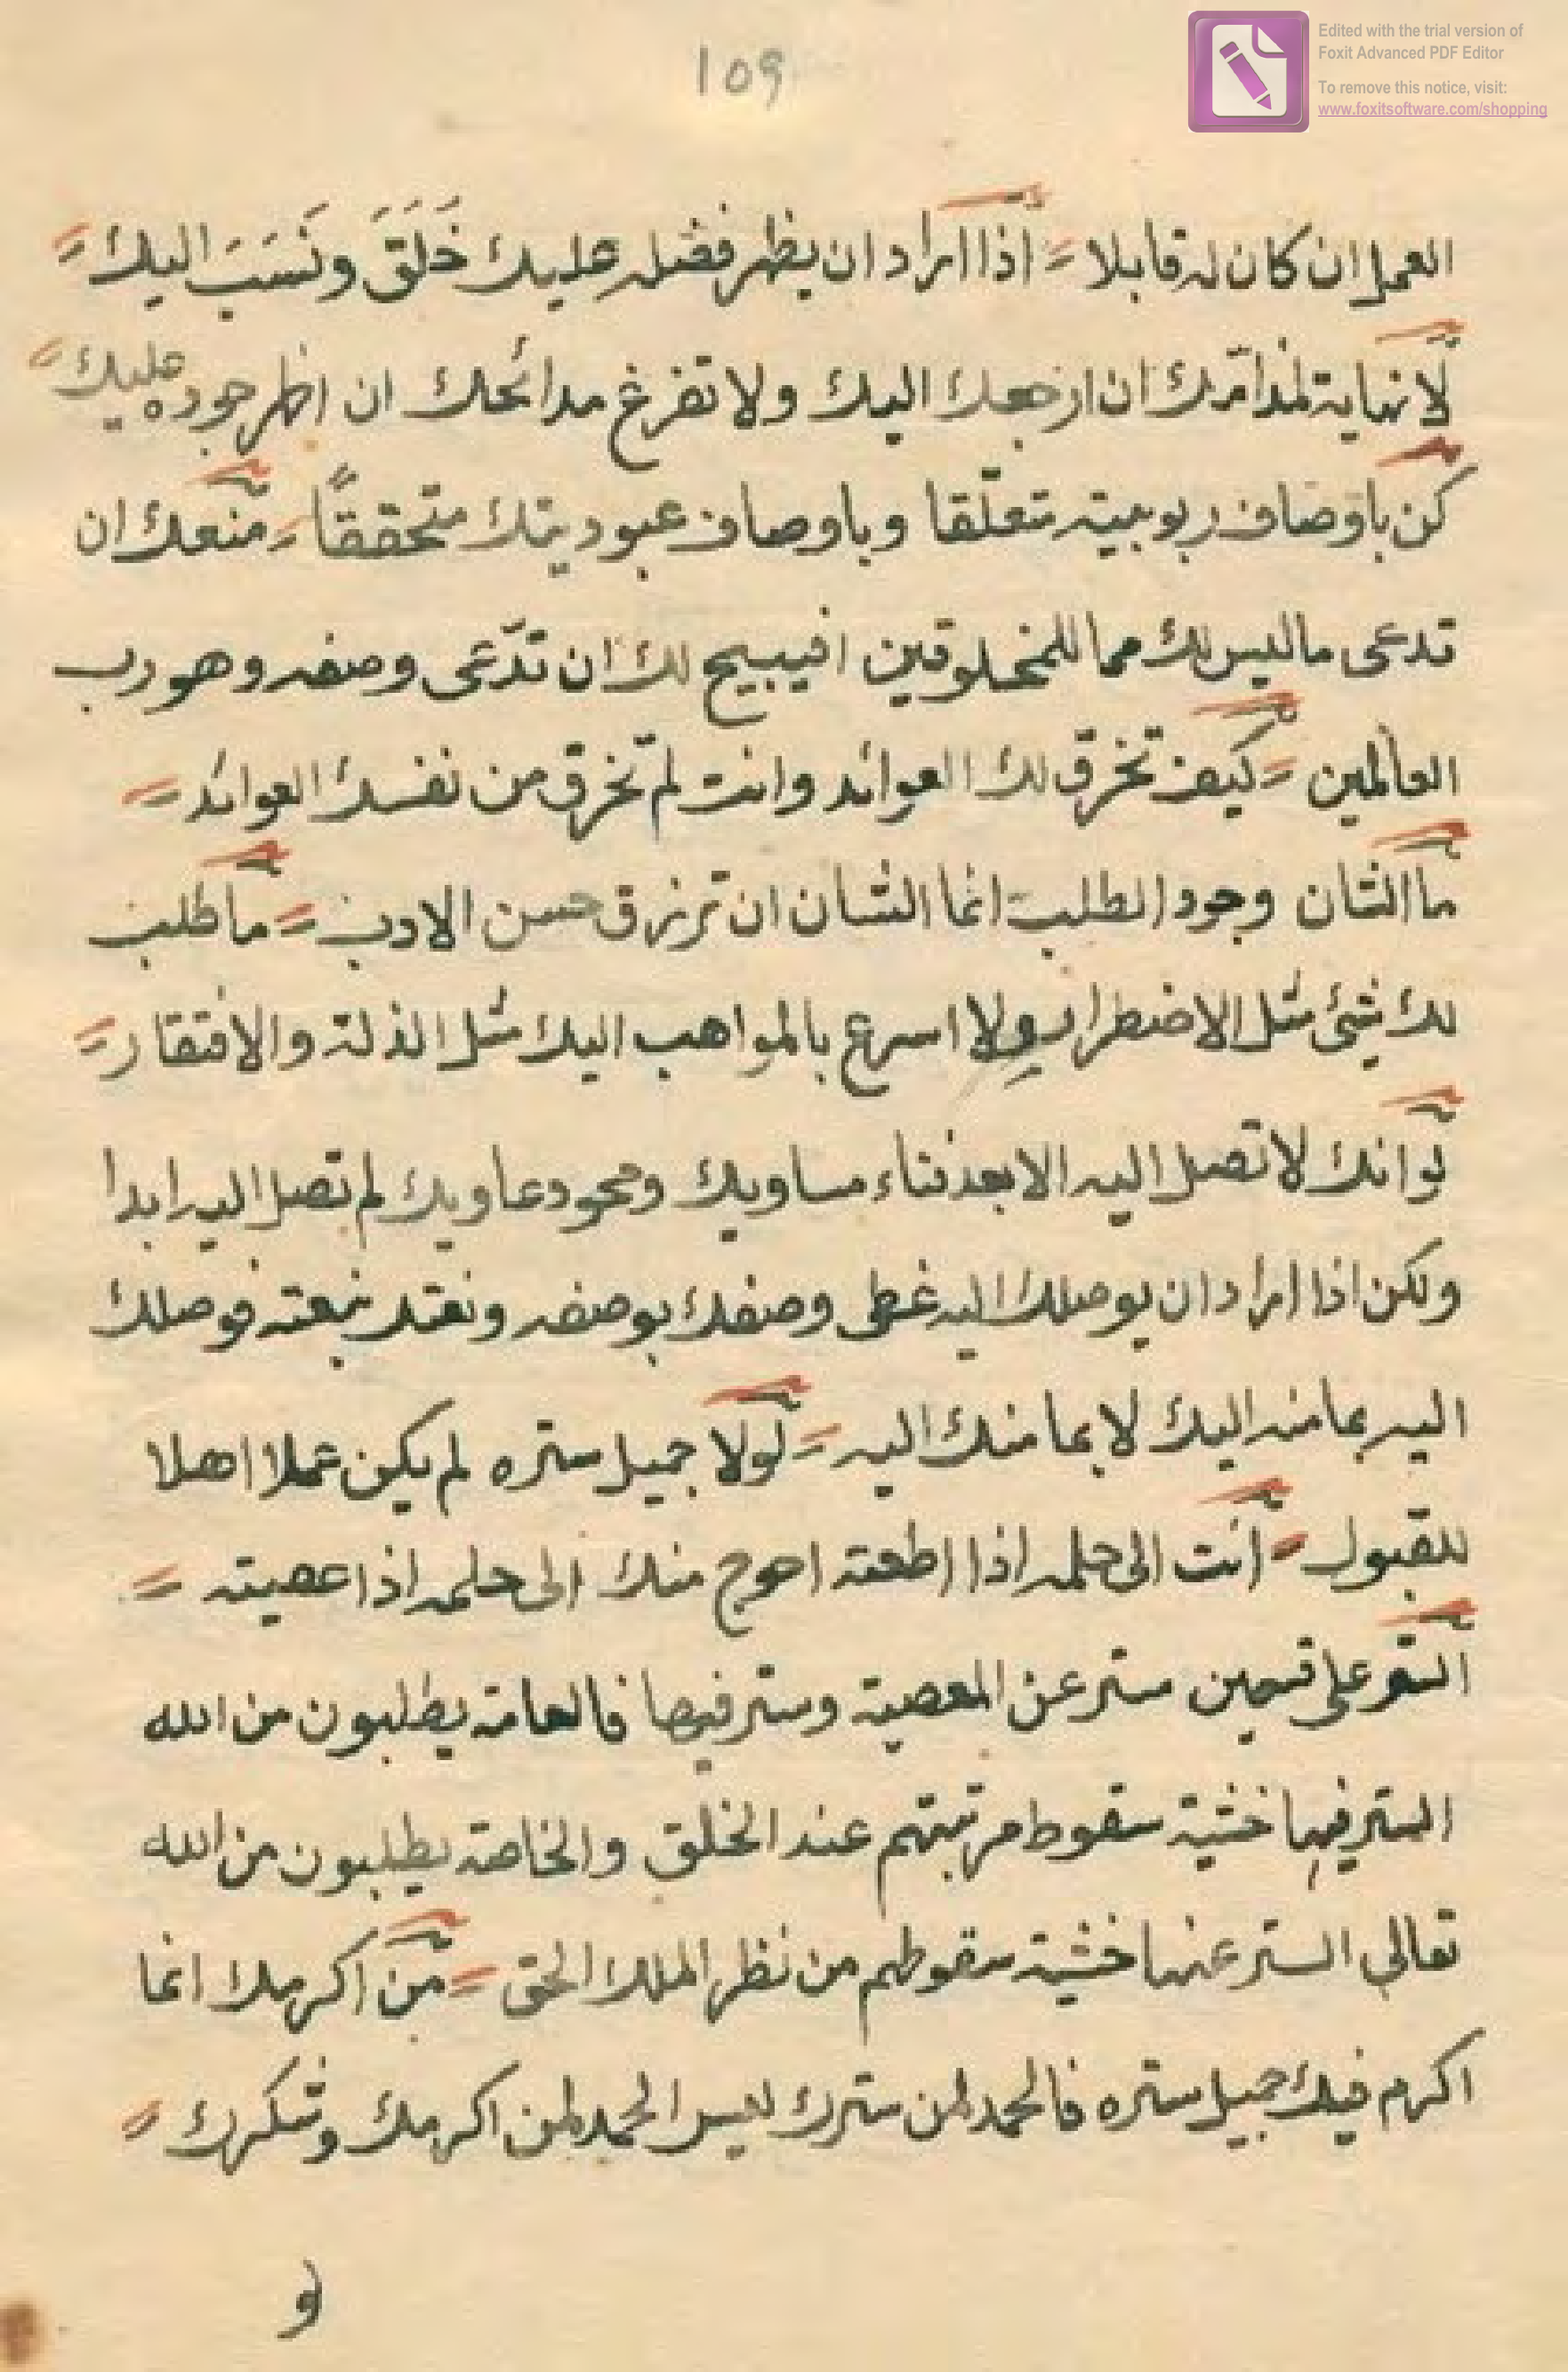 Edited with the trial version of
Foxit Advanced PDF Editor
To remove this notice, visit:
www.foxitsoftware.com/shopping
١٥٩
العمل ان كان له قابلا اذا اراد ان يظهر فضله عليك خَلَقَ ونَسَبَ اليك
لا نهاية لمذامّك ان ارجعك اليك ولا تفرغ مدائحك ان اظهر جوده عليك
كن باوصاف ربوبيته متعلّقا وباوصاف عبوديتك متحققًا منعك ان
تدعى ما ليس لك مما للمخلوقين افيبيح لك ان تدّعى وصفه وهو رب
العالمين كيف تخرق لك العوائد وانت لم تخرق من نفسك العوائد
ما الشان وجود الطلب انما الشان ان ترزق حسن الادب ما طلب
لك شئ مثل الاضطرار ولا اسرع بالمواهب اليك مثل الذلة والافتقار
لو انك لا تصل اليه الا بعد فناء مساويك ومحو دعاويك لم تصل اليه ابدا
ولكن اذا اراد ان يوصلك اليه غطى وصفك بوصفه ونعتك بنعته فوصلك
اليه بما منه اليك لا بما منك اليه لولا جميل ستره لم يكن عملا اهلا
للقبول انت الى حلمه اذا اطعته احوج منك الى حلمه اذا عصيته
الستر على قسمين ستر عن المعصية وستر فيها فالعامة يطلبون من الله
الستر فيها خشية سقوط مرتبتهم عند الخلق والخاصة يطلبون من الله
تعالى الستر عنها خشية سقوطهم من نظر الملك الحق من اكرمك انما
اكرم فيك جميل ستره فالحمد لمن سترك ليس الحمد لمن اكرمك وشكرك
و